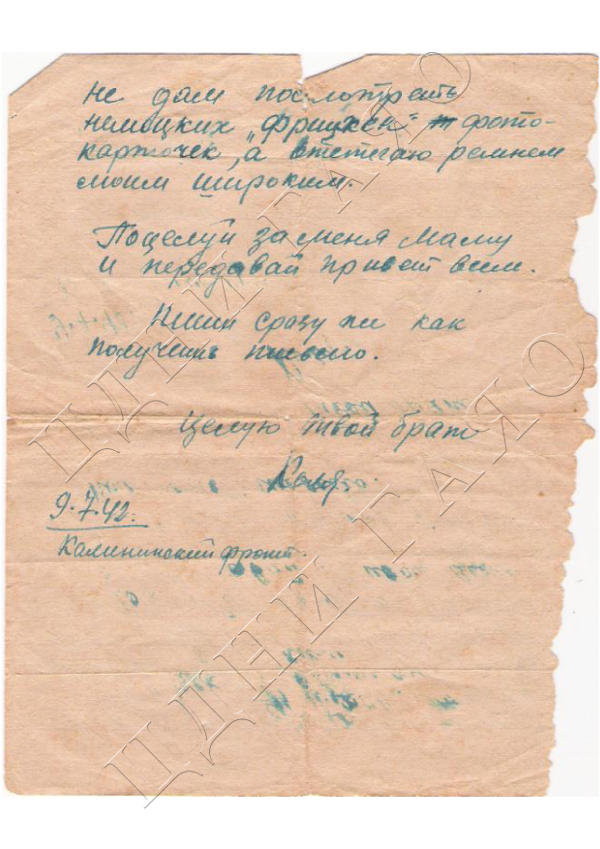 не дам посмотреть
немецких „Фрицхен" фото-
карточек, а отстегаю ремнем
моим широким.
Поцелуй за меня Маму
и передавай привет всем.
Пиши сразу же как
получишь письмо.
Целую твой брат
Коля.
9.7.42.
Калининский фронт.
ЦДНИ ГАЯО
ЦДНИ ГАЯО